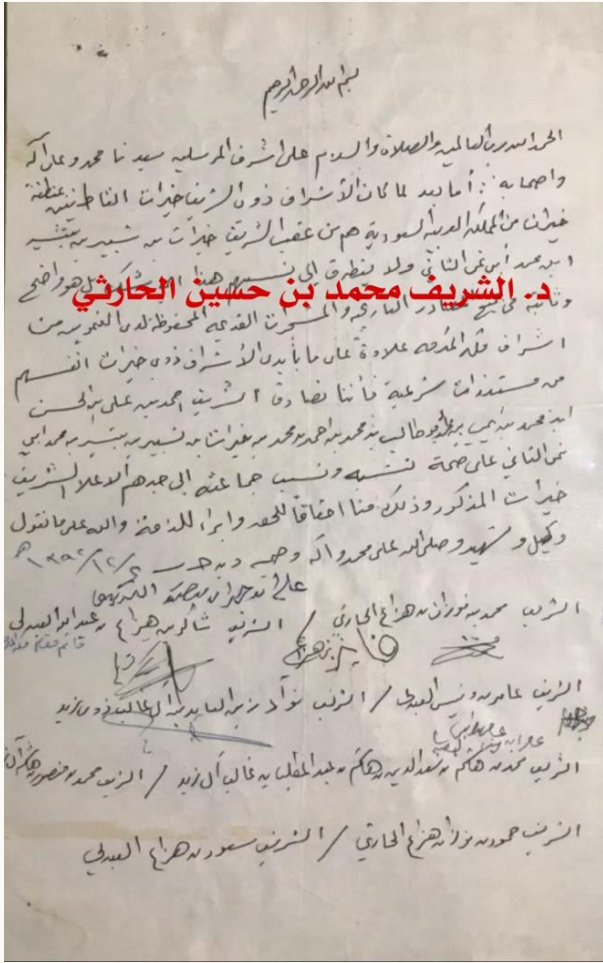 بسم الله الرحمن الرحيم
الحمد لله رب العالمين والصلاة والسلام على اشرف المرسلين سيدنا محمد وعلى آله
واصحابه : أما بعد لما كان الأشراف ذوي الشريف خيرات القاطنين بمنطقة
خيران من المملكة العربية السعودية هم من عقب الشريف خيرات بن شبير بن بشير
ابن محمد أبي نمي الثاني ولا يتطرق الى نسبهم هذا شك بل هو واضح
د. الشريف محمد بن حسين الحارثي
وثابت في التاريخيه والمسجرات القديمه المحفوظة لدى من
اشراف مكه المكرمه علاوة على ما بأيدي الأشراف ذوي خيرات انفسهم
من مستندات شرعية فأننا نصادق الشريف احمد بن علي بن الحسن
ابن محمد بن بن ابو طالب بن محمد بن احمد بن محمد بن خيرات بن شبير بن بشير بن محمد ابي
نمي الثاني على صحة نسبه ونسب جماعته الى جدهم الاعلا الشريف
خيرات المذكور وذلك منا احقاقا للحق وابراء للذمة والله على ما نقول
وكيل وشهيد وصلى الله على محمد وآله وصحبه
الشريف محمد بن فوزان بن هزاع الحارثي / الشريف شاكر بن هزاع العبدلي
قائم مقام
الشريف عامر بن العبدلي / الشريف نواد زين العابدين آل غالب ذوي زيد
الشريف محمد بن هاشم بن سعد الدين بن هاشم بن عبد المطلب بن غالب آل زيد / الشريف محمد بن منصور بن هاشم
الشريف حمود بن فوزان هزاع الحارثي / الشريف سعود بن هزاع العبدلي